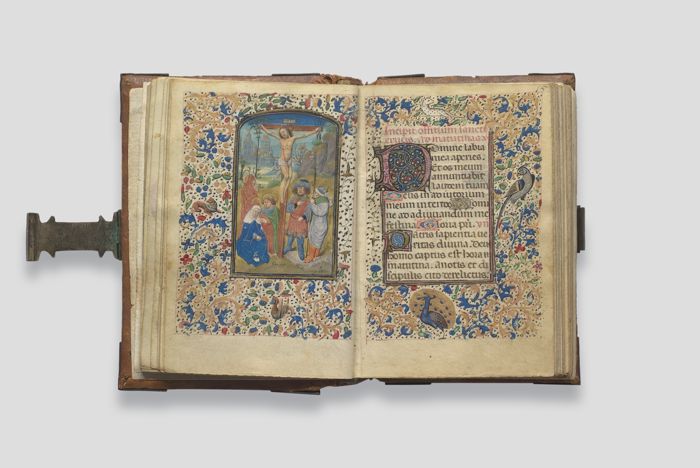 Incipit offitium sancte
crucis. ad matutinas.
Domine labia
mea aperies.
Et os meum
annunciabit
laudem tuam
Deus in adiutorium
meum intende
ne ad adiuvandum me
festina Gloria pri.
Patris sapientia ve
ritas divina. deus
homo captus est hora
matutina. a notis et di
scipulis cito derelictus.